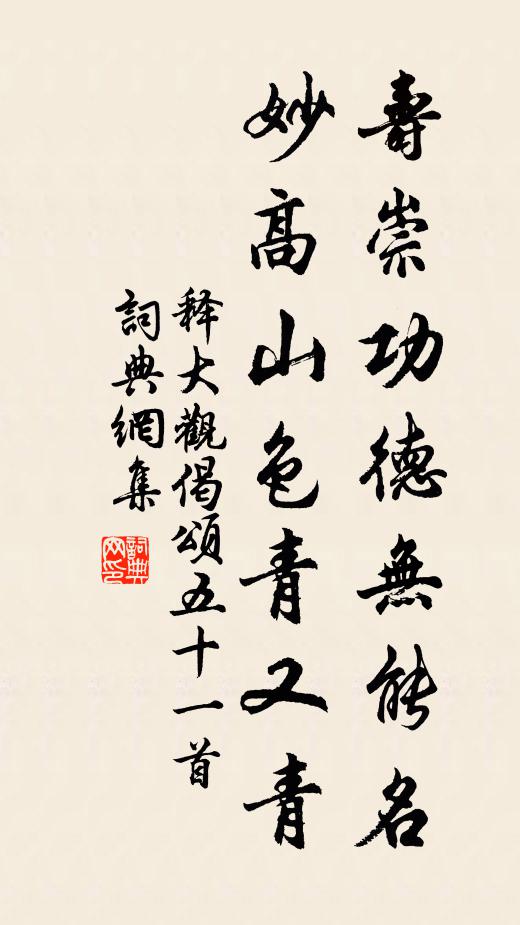 壽崇功德無能名
妙高山色青又青
释大觀偈頌五十一首
詞典網集
詞典网印